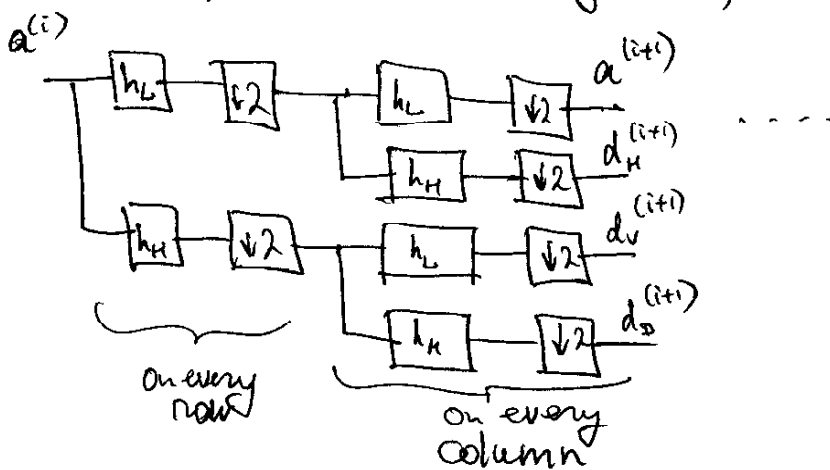 a^(i)
h_L ↓2 h_L ↓2 a^(i+1)
h_H ↓2 d_H^(i+1)
h_H ↓2 h_L ↓2 d_V^(i+1)
h_H ↓2 d_D^(i+1)
On every
row
on every
column